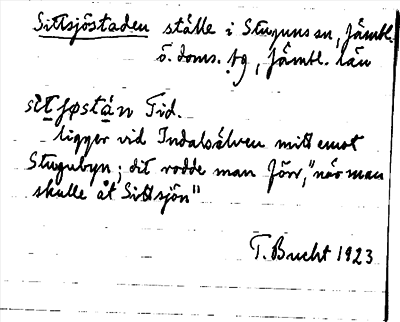 Sittsjöstaden ställe i Stuguns sn, Jämtl.
ö. doms. tg, Jämtl. län
sìtʃøstàn Tid.
ligger vid Indalsälven mitt emot
Stugubyn; dit rodde man förr, "när man
skulle åt Sittsjön"
T. Bucht 1923